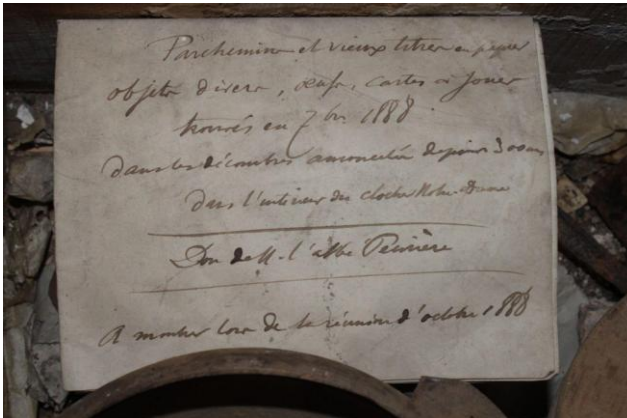 Parchemins et vieux titres en papier
objets divers, oeufs, cartes à jouer
trouvés en 7bre 1888
dans les décombres amoncelés depuis 300 ans
dans l'intérieur du clocher Notre-Dame
Don de M. l'abbé
A montrer lors de la réunion d'octobre 1888